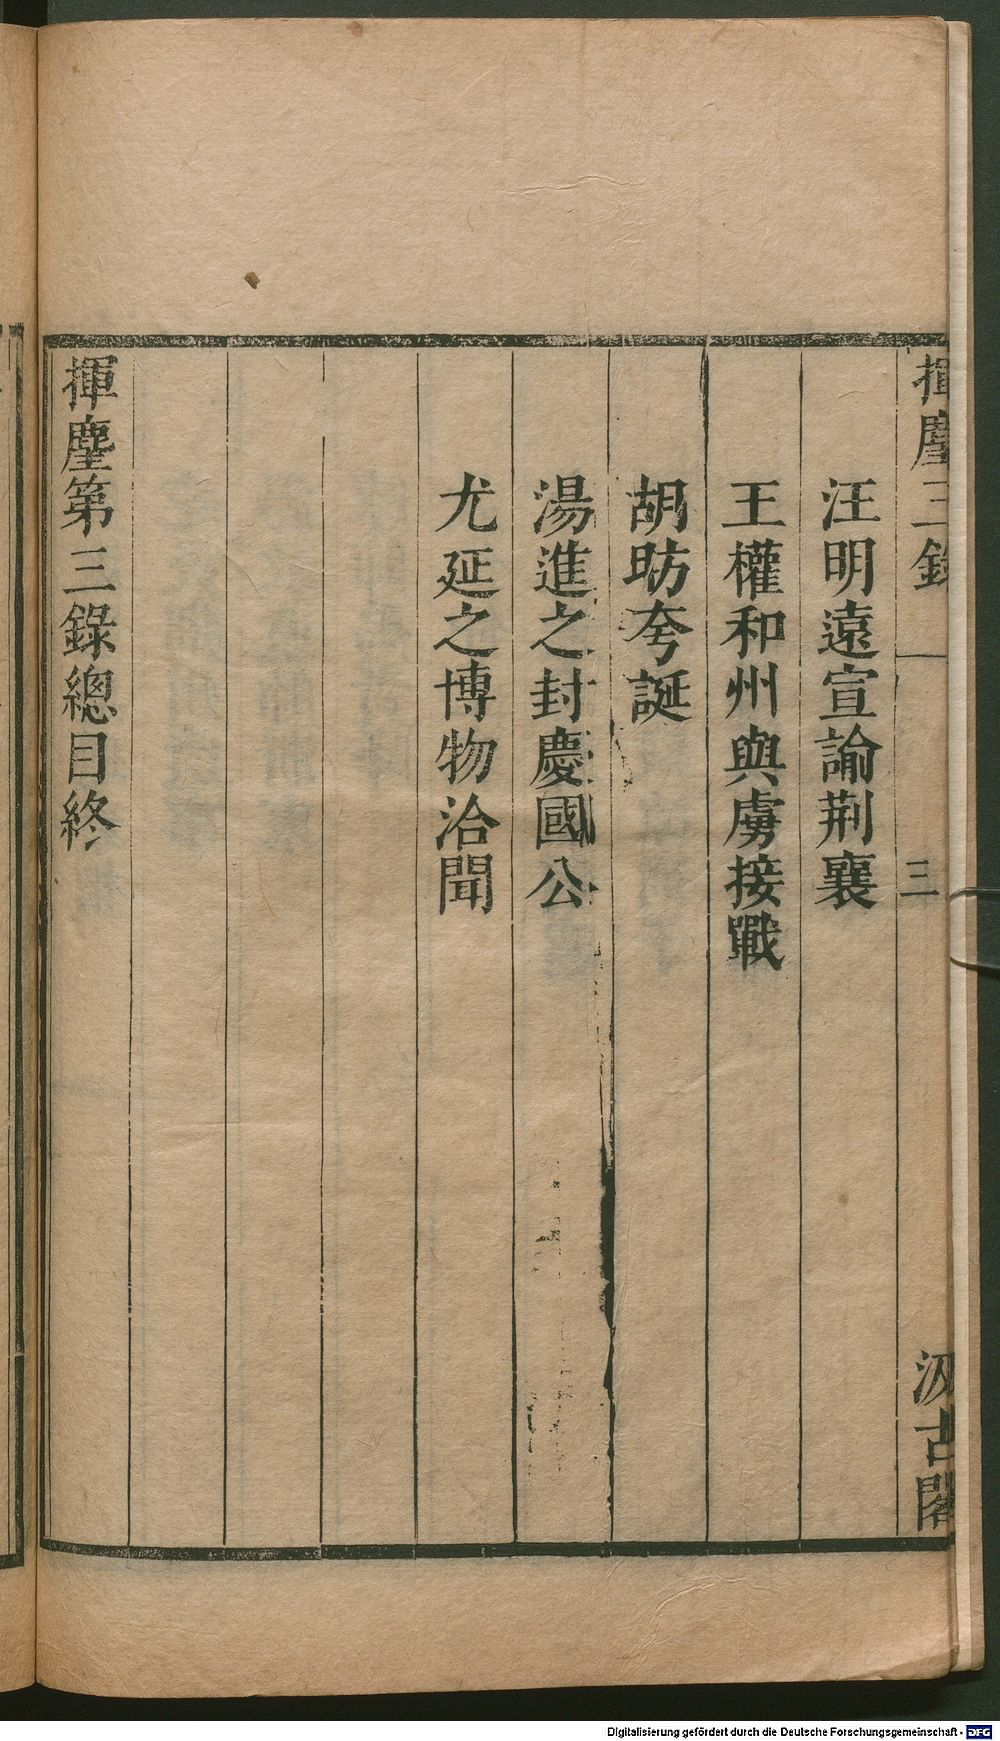 揮麈三錄
三
汲古閣
汪明遠宣諭荆襄
王權和州與虜接戰
胡昉夸誕
湯進之封慶國公
尤延之博物洽聞
揮麈第三錄總目終
Digitalisierung gefördert durch die Deutsche Forschungsgemeinschaft - DFG